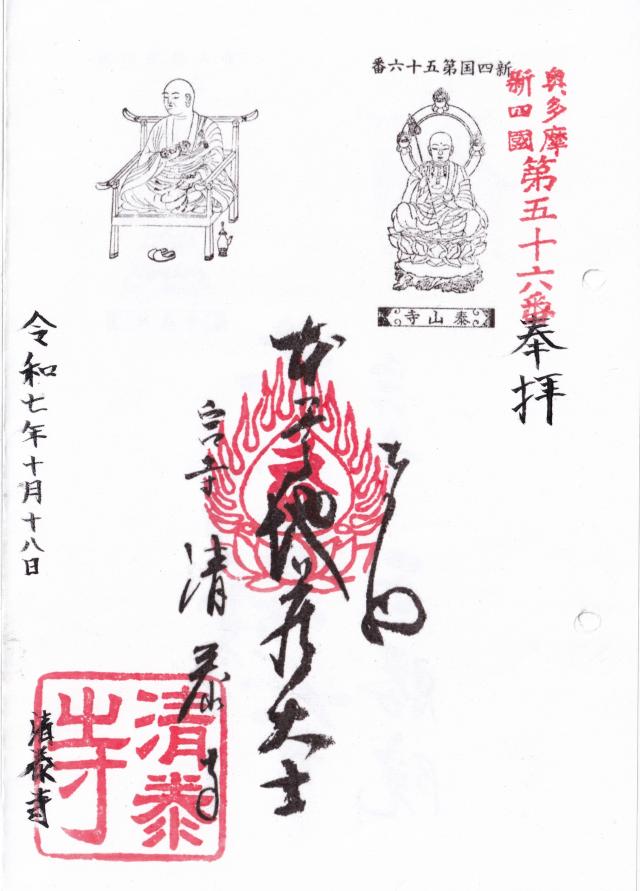 新四国第五十六番
奥多摩
新四國
第五十六番
泰山寺
奉拝
本尊地蔵大士
清泰寺
令和七年十月十八日
清泰寺
清泰寺